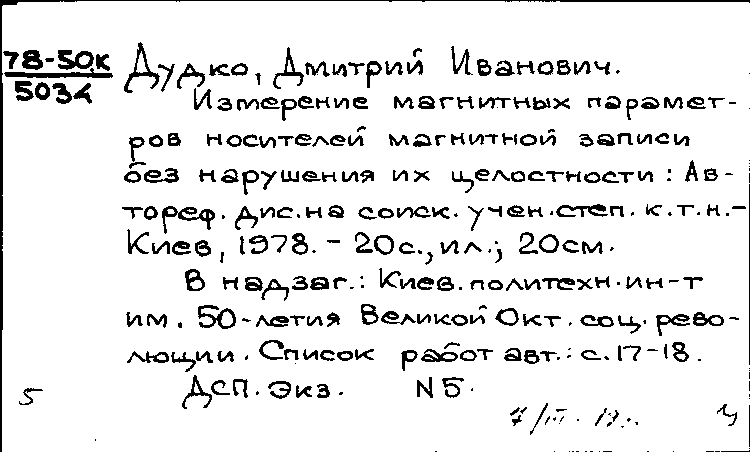 78-50.К
5034
Дудко, Дмитрий Иванович.
Измерение магнитных парамет-
ров носителей магнитной записи
без нарушения их целостности : Ав-
тореф. дис. на соиск. учен. степ. к.т.н.-
Киев, 1978. - 20 с., ил.; 20см.
В надзаг.: Киев. политехн. ин-т
им. 50-летия Великой Окт. соц. рево-
люции. Список работ авт.: с. 17-18.
ДСП. Экз. N5.
5